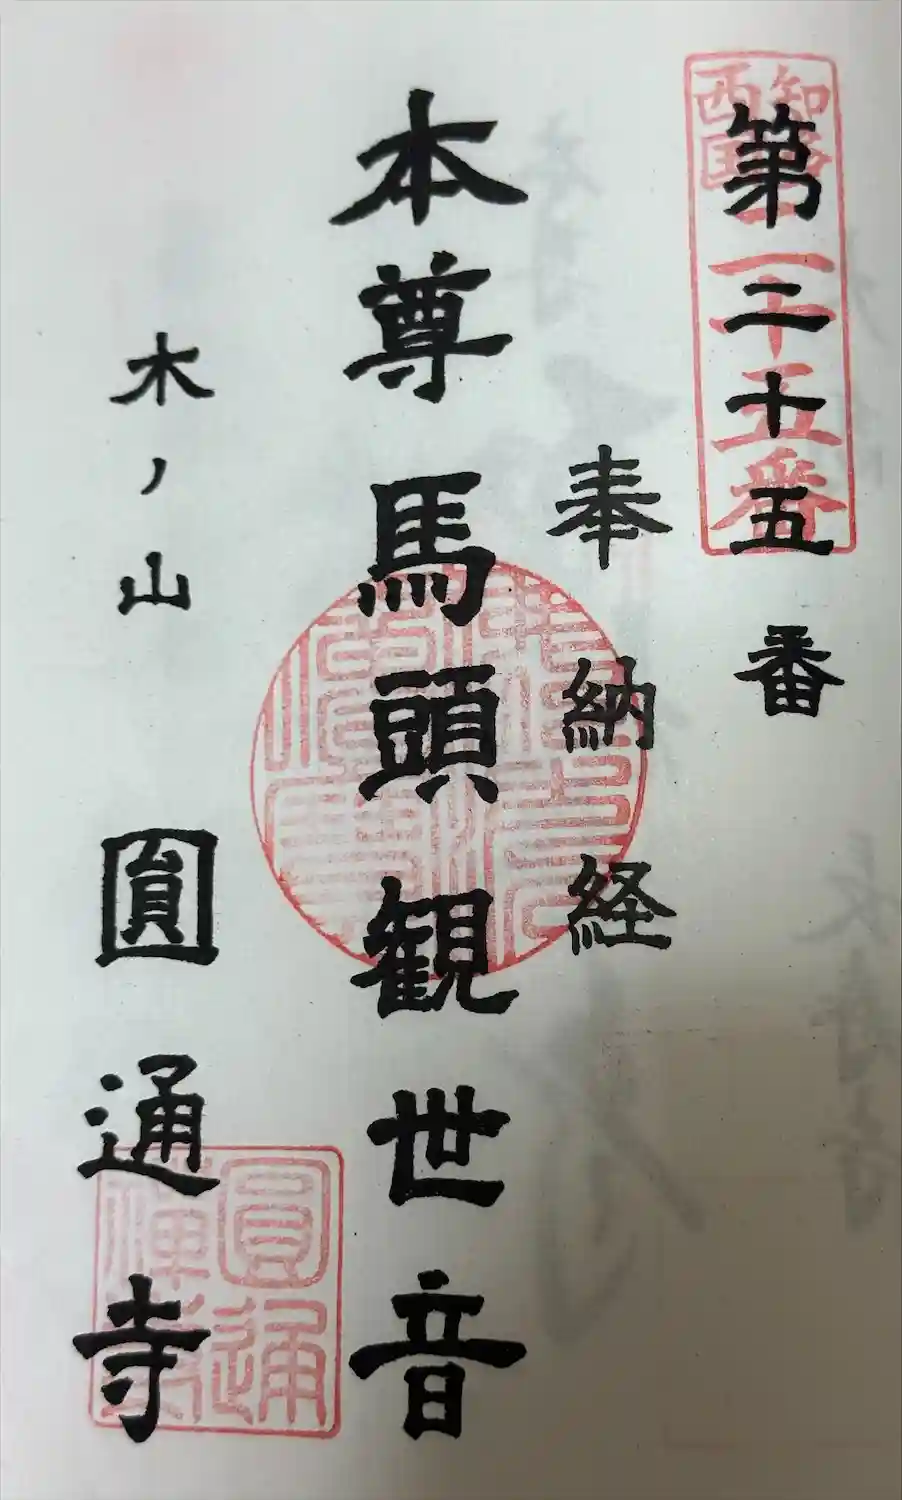 第二十五番
奉納経
本尊馬頭観世音
木ノ山 圓通寺
二十五番
圓通